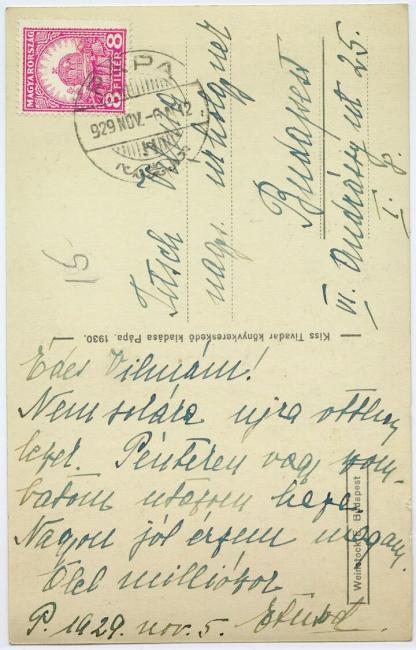 MAGYARORSZÁG
8 FILLÉR 8
PÁPA
929 NOV.-6.
Vilma
nagys. úrhölgynek
Budapest
VI. Andrássy út 25.
I.
15
Kiss Tivadar könyvkereskedő kiadása Pápa. 1930.
Weinstock E. Budapest
Édes Vilmám!
Nem sokára ujra otthon
leszek. Pénteken vagy szom-
baton utazom haza.
Nagyon jól érzem magam.
Ölel milliószor
P. 1929. nov. 5.